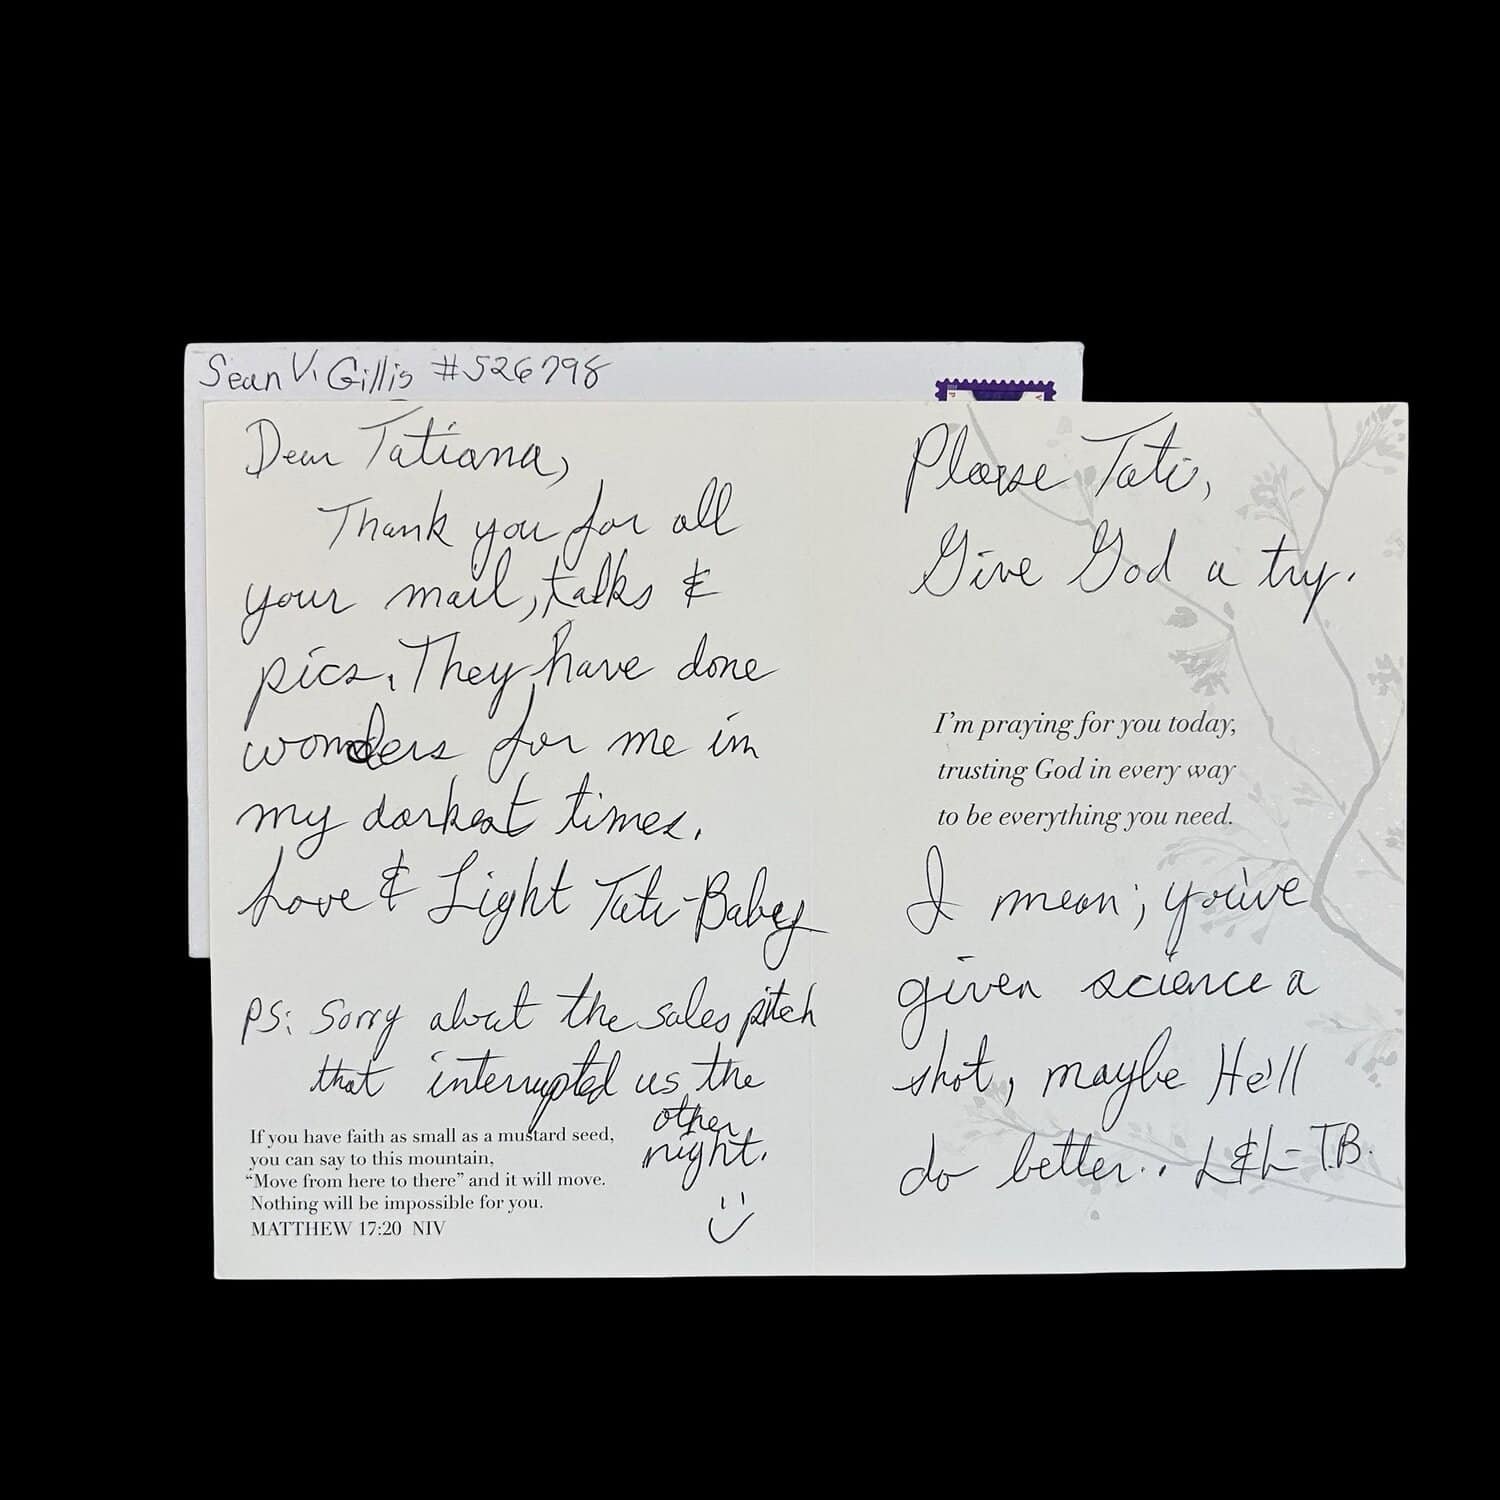 Sean V. Gillis #526798
Dear Tatiana,
Thank you for all
your mail, talks &
pics. They have done
wonders for me in
my darkest times.
Love & Light Tati-Baby
PS: Sorry about the sales pitch
that interrupted us the
other
night.
If you have faith as small as a mustard seed,
you can say to this mountain,
“Move from here to there” and it will move.
Nothing will be impossible for you.
MATTHEW 17:20 NIV
Please Tati,
Give God a try.
I'm praying for you today,
trusting God in every way
to be everything you need.
I mean; you've
given science a
shot, maybe He'll
do better.. L&L- T.B.